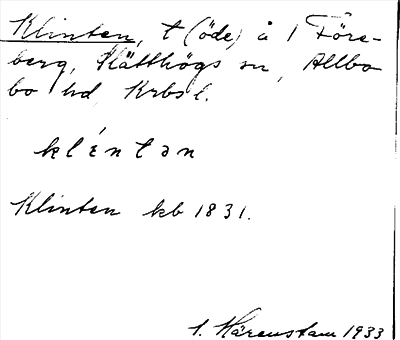 Klinten, t (öde) å 1 Före-
berg, Slätthögs sn, Allbo
bo hd, Krbs l.
kléntan
Klinten kb 1831.
1. Härenstam 1933